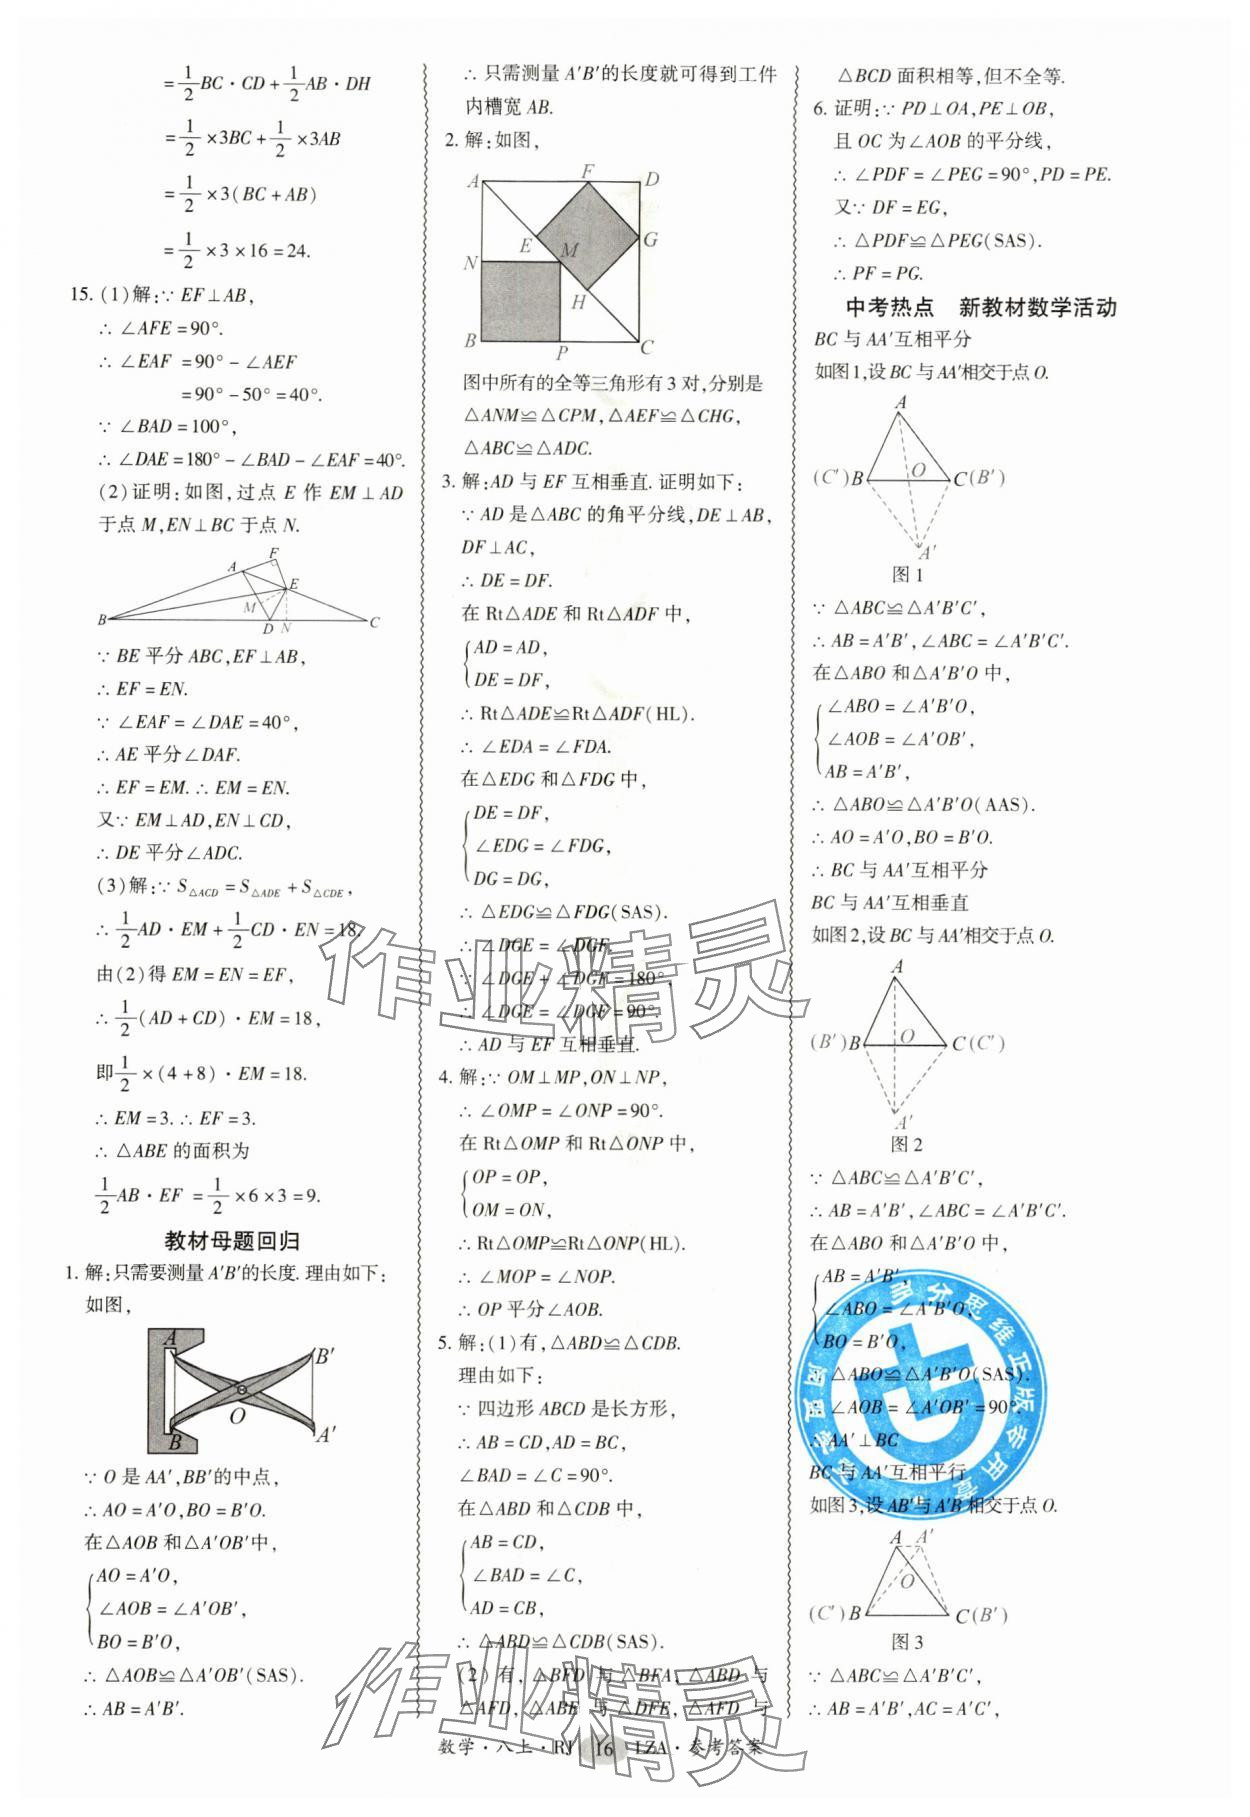 =1/2BC·CD+1/2AB·DH
=1/2×3BC+1/2×3AB
=1/2×3(BC+AB)
=1/2×3×16=24.
15. (1)解:∵ EF⊥AB,
∴ ∠AFE=90°.
∴ ∠EAF=90°-∠AEF
=90°-50°=40°.
∵ ∠BAD=100°,
∴ ∠DAE=180°-∠BAD-∠EAF=40°.
(2)证明:如图,过点 E 作 EM⊥AD
于点 M,EN⊥BC 于点 N.
F
A
E
M
B
D
N
C
∵ BE 平分 ABC,EF⊥AB,
∴ EF=EN.
∵ ∠EAF=∠DAE=40°,
∴ AE 平分∠DAF.
∴ EF=EM.∴ EM=EN.
又∵ EM⊥AD,EN⊥CD,
∴ DE 平分∠ADC.
(3)解:∵ S△ACD=S△ADE+S△CDE,
∴ 1/2AD·EM+1/2CD·EN=18.
由(2)得 EM=EN=EF,
∴ 1/2(AD+CD)·EM=18,
即1/2×(4+8)·EM=18.
∴ EM=3.∴ EF=3.
∴ △ABE 的面积为
1/2AB·EF=1/2×6×3=9.
教材母题回归
1. 解:只需要测量 A′B′的长度.理由如下:
如图,
A
B′
O
B
A′
∵ O 是 AA′,BB′的中点,
∴ AO=A′O,BO=B′O.
在△AOB 和△A′OB′中,
AO=A′O,
∠AOB=∠A′OB′,
BO=B′O,
∴ △AOB≌△A′OB′(SAS).
∴ AB=A′B′.
∴ 只需测量 A′B′的长度就可得到工件
内槽宽 AB.
2. 解:如图,
A
F
D
E
G
N
M
H
B
P
C
图中所有的全等三角形有 3 对,分别是
△ANM≌△CPM,△AEF≌△CHG,
△ABC≌△ADC.
3. 解:AD 与 EF 互相垂直.证明如下:
∵ AD 是△ABC 的角平分线,DE⊥AB,
DF⊥AC,
∴ DE=DF.
在 Rt△ADE 和 Rt△ADF 中,
AD=AD,
DE=DF,
∴ Rt△ADE≌Rt△ADF(HL).
∴ ∠EDA=∠FDA.
在△EDG 和△FDG 中,
DE=DF,
∠EDG=∠FDG,
DG=DG,
∴ △EDG≌△FDG(SAS).
∴ ∠DGE=∠DGF.
∵ ∠DGE+∠DGF=180°,
∴ ∠DGE=∠DGF=90°.
∴ AD 与 EF 互相垂直.
4. 解:∵ OM⊥MP,ON⊥NP,
∴ ∠OMP=∠ONP=90°.
在 Rt△OMP 和 Rt△ONP 中,
OP=OP,
OM=ON,
∴ Rt△OMP≌Rt△ONP(HL).
∴ ∠MOP=∠NOP.
∴ OP 平分∠AOB.
5. 解:(1)有,△ABD≌△CDB.
理由如下:
∵ 四边形 ABCD 是长方形,
∴ AB=CD,AD=BC,
∠BAD=∠C=90°.
在△ABD 和△CDB 中,
AB=CD,
∠BAD=∠C,
AD=CB,
∴ △ABD≌△CDB(SAS).
(2) 有, △BFD 与 △BFA, △ABD 与
△AFD, △ABE 与 △DFE, △AFD 与
△BCD 面积相等,但不全等.
6. 证明:∵ PD⊥OA,PE⊥OB,
且 OC 为∠AOB 的平分线,
∴ ∠PDF=∠PEG=90°,PD=PE.
又∵ DF=EG,
∴ △PDF≌△PEG(SAS).
∴ PF=PG.
中考热点 新教材数学活动
BC 与 AA′互相平分
如图1,设 BC 与 AA′相交于点 O.
A
O
(C′)B
C(B′)
A′
图 1
∵ △ABC≌△A′B′C′,
∴ AB=A′B′,∠ABC=∠A′B′C′.
在△ABO 和△A′B′O 中,
∠ABO=∠A′B′O,
∠AOB=∠A′OB′,
AB=A′B′,
∴ △ABO≌△A′B′O(AAS).
∴ AO=A′O,BO=B′O.
∴ BC 与 AA′互相平分
BC 与 AA′互相垂直
如图2,设 BC 与 AA′相交于点 O.
A
O
(B′)B
C(C′)
A′
图 2
∵ △ABC≌△A′B′C′,
∴ AB=A′B′,∠ABC=∠A′B′C′.
在△ABO 和△A′B′O 中,
AB=A′B′,
∠ABO=∠A′B′O,
BO=B′O,
∴ △ABO≌△A′B′O(SAS).
∴ ∠AOB=∠A′OB′=90°.
∴ AA′⊥BC
BC 与 AA′互相平行
如图3,设 AB′与 A′B 相交于点 O.
A
A′
O
(C′)B
C(B′)
图 3
∵ △ABC≌△A′B′C′,
∴ AB=A′B′,AC=A′C′,
数学·八上·RJ 16 LZA·参考答案
作业精灵
作业精灵